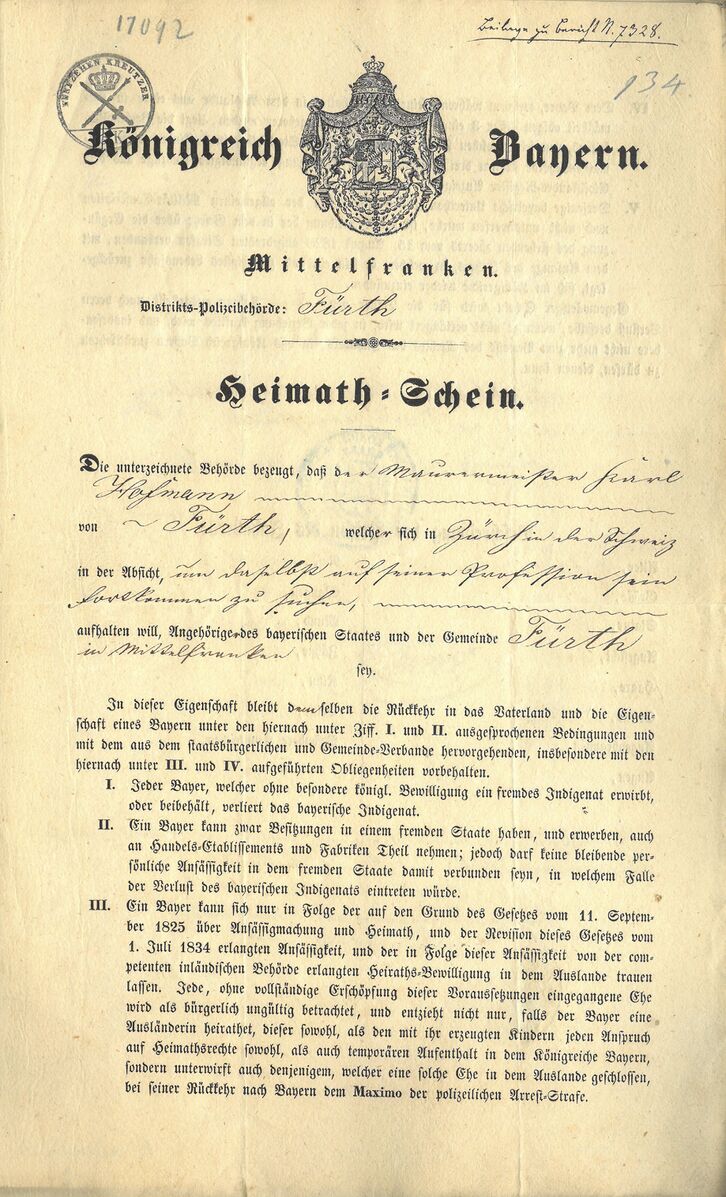 17092
Beilage zu Bericht N. 7328.
134
FÜNFZEHEN KREUTZER
Königreich Bayern.
Mittelfranken.
Distrikts-Polizeibehörde: Fürth
Heimath-Schein.
Die unterzeichnete Behörde bezeugt, daß der Maurermeister Karl
Hofmann
von Fürth, welcher sich in Zürch in der Schweiz
in der Absicht, um daselbst auf seiner Profession sein
Fortkommen zu suchen,
aufhalten will, Angehöriger des bayerischen Staates und der Gemeinde Fürth
in Mittelfranken
sey.
In dieser Eigenschaft bleibt demselben die Rückkehr in das Vaterland und die Eigen-
schaft eines Bayern unter den hiernach unter Ziff. I. und II. ausgesprochenen Bedingungen und
mit dem aus dem staatsbürgerlichen und Gemeinde-Verbande hervorgehenden, insbesondere mit den
hiernach unter III. und IV. aufgeführten Obliegenheiten vorbehalten.
I. Jeder Bayer, welcher ohne besondere königl. Bewilligung ein fremdes Indigenat erwirbt,
oder beibehält, verliert das bayerische Indigenat.
II. Ein Bayer kann zwar Besitzungen in einem fremden Staate haben, und erwerben, auch
an Handels-Etablissements und Fabriken Theil nehmen; jedoch darf keine bleibende per-
sönliche Ansässigkeit in dem fremden Staate damit verbunden seyn, in welchem Falle
der Verlust des bayerischen Indigenats eintreten würde.
III. Ein Bayer kann sich nur in Folge der auf den Grund des Gesetzes vom 11. Septem-
ber 1825 über Ansässigmachung und Heimath, und der Revision dieses Gesetzes vom
1. Juli 1834 erlangten Ansässigkeit, und der in Folge dieser Ansässigkeit von der com-
petenten inländischen Behörde erlangten Heiraths-Bewilligung in dem Auslande trauen
lassen. Jede, ohne vollständige Erschöpfung dieser Voraussetzungen eingegangene Ehe
wird als bürgerlich ungültig betrachtet, und entzieht nicht nur, falls der Bayer eine
Ausländerin heirathet, dieser sowohl, als den mit ihr erzeugten Kindern jeden Anspruch
auf Heimathsrechte sowohl, als auch temporären Aufenthalt in dem Königreiche Bayern,
sondern unterwirft auch denjenigem, welcher eine solche Ehe in dem Auslande geschlossen,
bei seiner Rückkehr nach Bayern dem Maximo der polizeilichen Arrest-Strafe.